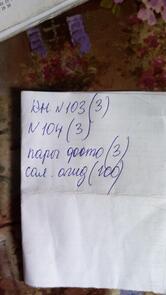 ДН N103 (3)
N104 (3)
пары фото (3)
сал. огид (100)